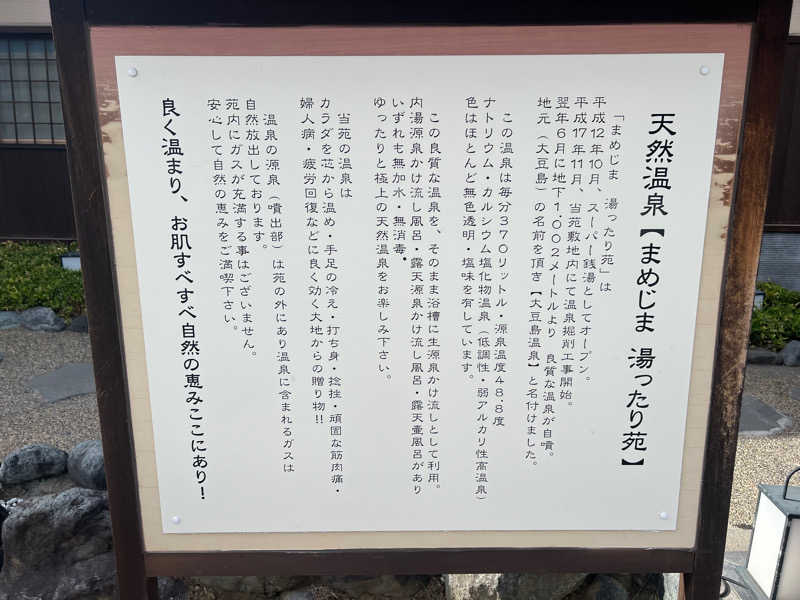 天然温泉【まめじま 湯ったり苑】
「まめじま 湯ったり苑」は
平成12年10月、スーパー銭湯としてオープン。
平成17年11月、当苑敷地内にて温泉掘削工事開始。
翌年6月に地下1.002メートルより 良質な温泉が自噴。
地元(大豆島)の名前を頂き【大豆島温泉】と名付けました。
この温泉は毎分370リットル・源泉温度48.8度
ナトリウム・カルシウム塩化物温泉(低調性・弱アルカリ性高温泉)
色はほとんど無色透明・塩味を有しています。
この良質な温泉を、そのまま浴槽に生源泉かけ流しとして利用。
内湯源泉かけ流し風呂・露天源泉かけ流し風呂・露天壷風呂があり
いずれも無加水・無消毒。
ゆったりと極上の天然温泉をお楽しみ下さい。
当苑の温泉は
カラダを芯から温め・手足の冷え・打ち身・捻挫・頑固な筋肉痛・
婦人病・疲労回復などに良く効く大地からの贈り物!!
温泉の源泉(噴出部)は苑の外にあり温泉に含まれるガスは
自然放出しております。
苑内にガスが充満する事はございません。
安心して自然の恵みをご満喫下さい。
良く温まり、お肌すべすべ自然の恵みここにあり!